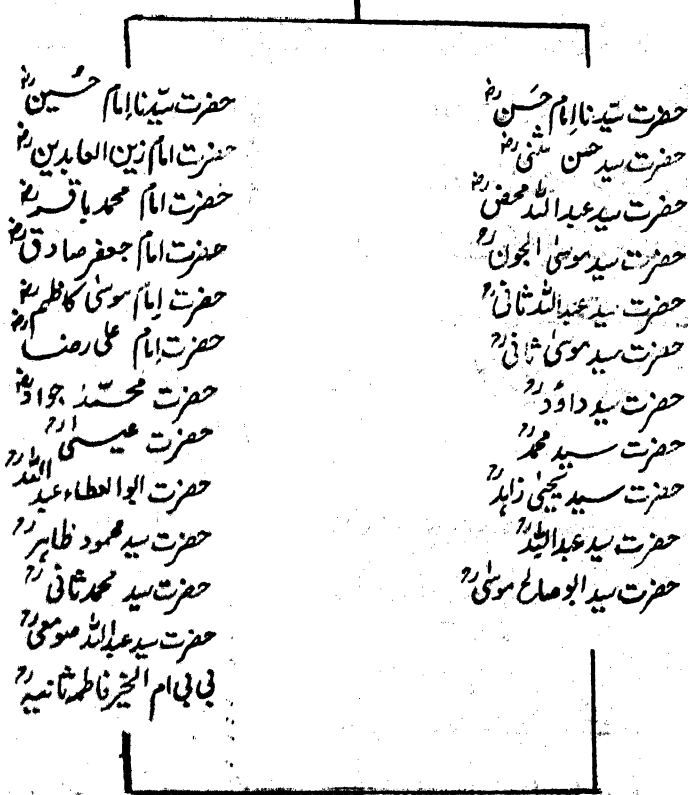 حضرت سیدنا امام حسنؓ
حضرت سید حسن مثنیؓ
حضرت سید عبداللہ محضؓ
حضرت سید موسیٰ الجونؒ
حضرت سید عبداللہ ثانیؒ
حضرت سید موسیٰ ثانیؒ
حضرت سید داؤدؒ
حضرت سید محمدؒ
حضرت سید یحییٰ زاہدؒ
حضرت سید عبداللہؒ
حضرت سید ابو صالح موسیٰؒ
حضرت سیّدنا اِمام حُسینؓ
حضرت امام زین العابدینؓ
حضرت امام محمد باقرؓ
حضرت امام جعفر صادقؓ
حضرت اِمام موسیٰ کاظمؓ
حضرت اِمام علی رضاؓ
حضرت محمّد جوادؓ
حضرت عیسیٰؒ
حضرت ابوالعطاء عبداللہؒ
حضرت سید محمود ظاہرؒ
حضرت سید محمد ثانیؒ
حضرت سید عبداللہ صومعیؒ
بی بی ام الخیر فاطمہ ثانیہؒ